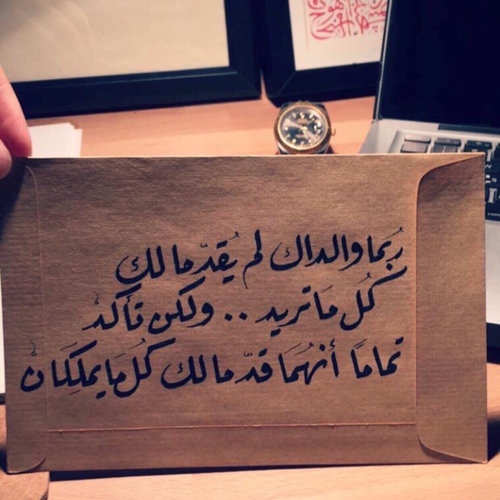 رُبما والداك لم يُقدّما لك
كُل مَا تريد .. ولكن تأكد
تماماً أنهُمَا قدّما لك كُل مَا يملِكَان